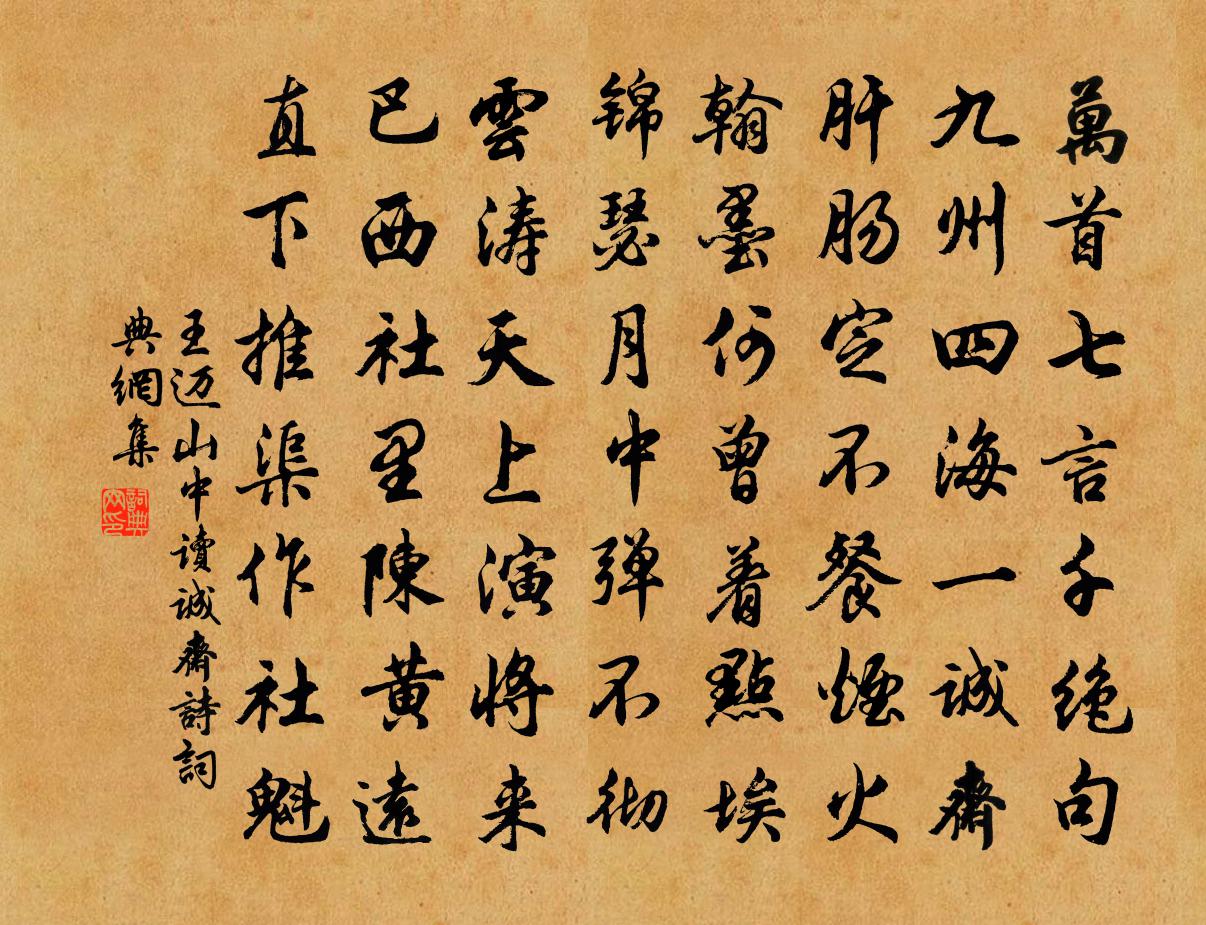 萬首七言千絶句
九州四海一誠齋
肝肠定不餐煙火
翰墨何曾着點埃
锦瑟月中弹不彻
雲涛天上演将来
巴西社里陳黄遠
直下推渠作社魁
王迈山中讀誠齋詩詞
典網集
詞典
网印